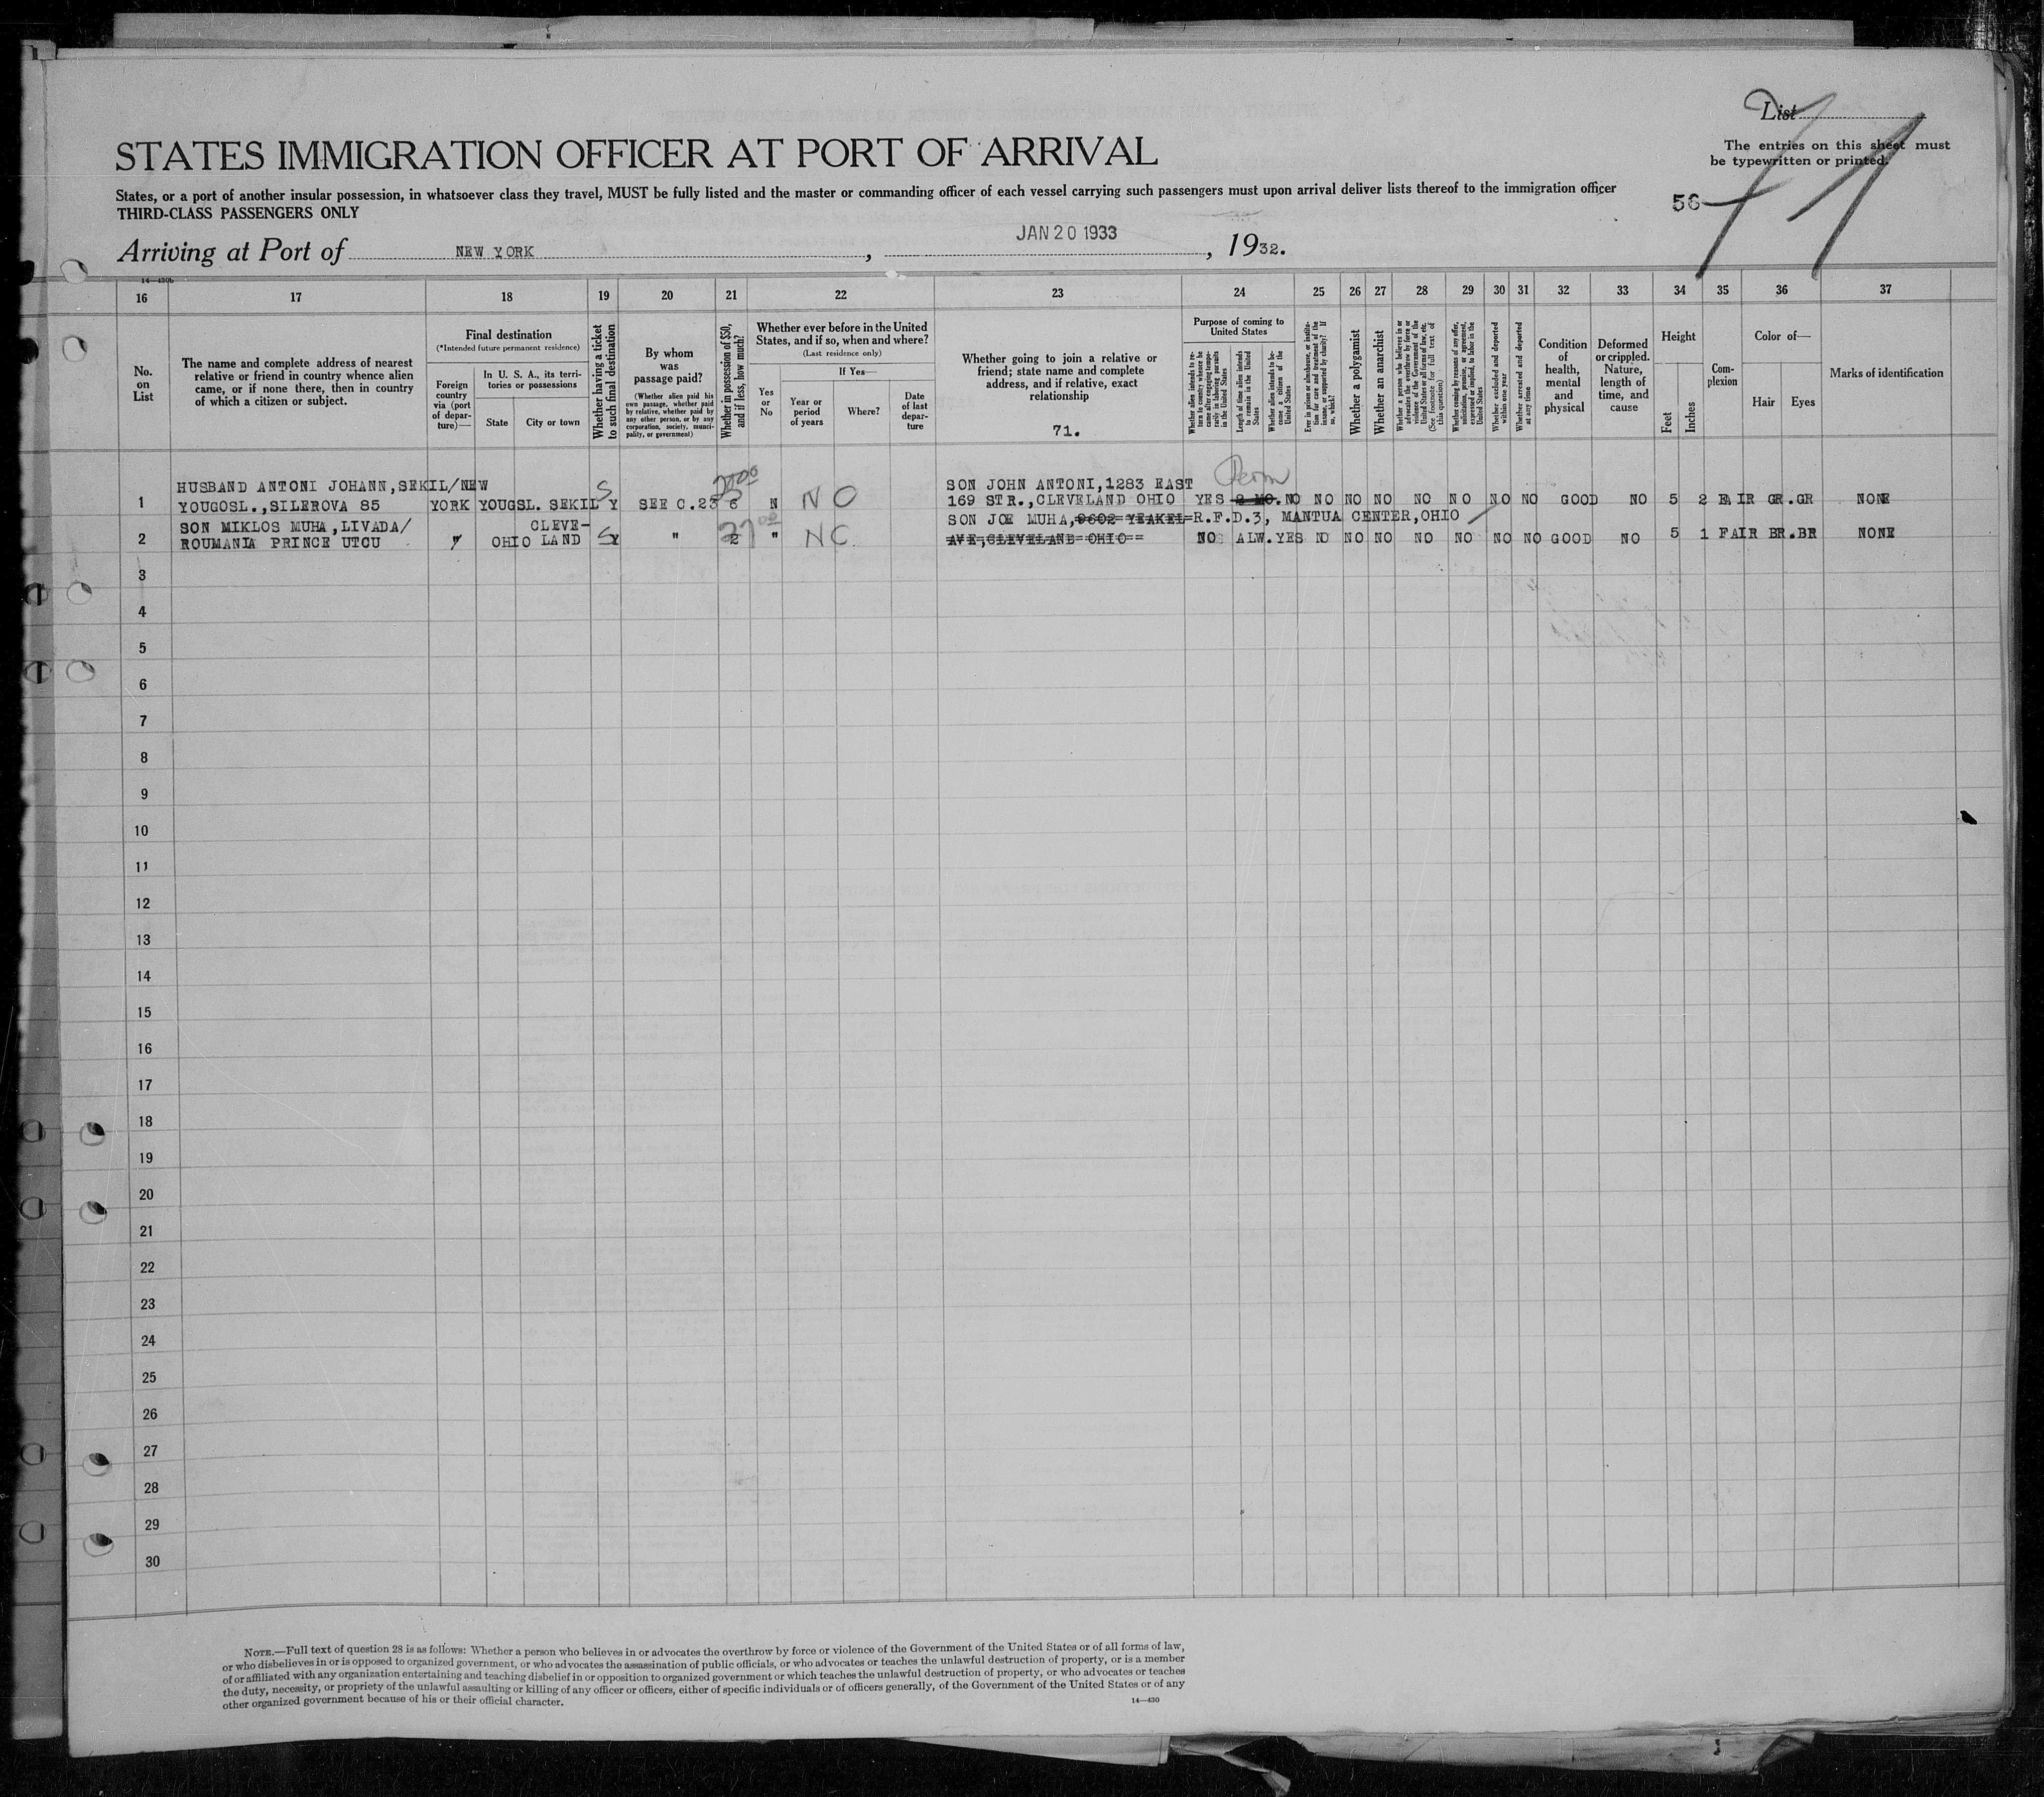 List
The entries on this sheet must
be typewritten or printed.
STATES IMMIGRATION OFFICER AT PORT OF ARRIVAL
States, or a port of another insular possession, in whatsoever class they travel, MUST be fully listed and the master or commanding officer of each vessel carrying such passengers must upon arrival deliver lists thereof to the immigration officer
THIRD-CLASS PASSENGERS ONLY
56
Arriving at Port of NEW YORK, JAN 20 1933, 1932.
14—430b
16 17 18 19 20 21 22 23 24 25 26 27 28 29 30 31 32 33 34 35 36 37
No. on List
The name and complete address of nearest
relative or friend in country whence alien
came, or if none there, then in country
of which a citizen or subject.
Final destination
(*Intended future permanent residence)
Foreign country via (port of departure)—
In U. S. A., its territories or possessions
State
City or town
Whether having a ticket to such final destination
By whom was passage paid?
(Whether alien paid his own passage, whether paid by relative, whether paid by any other person, or by any corporation, society, municipality, or government)
Whether in possession of $50, and if less, how much?
Whether ever before in the United
States, and if so, when and where?
(Last residence only)
Yes or No
If Yes—
Year or period of years
Where?
Date of last departure
Whether going to join a relative or
friend; state name and complete
address, and if relative, exact
relationship
71.
Purpose of coming to United States
Whether alien intends to return to country whence he came after engaging temporarily in laboring pursuits in the United States
Length of time alien intends to remain in the United States
Whether alien intends to become a citizen of the United States
Ever in prison or almshouse, or institution for care and treatment of the insane, or supported by charity? If so, which?
Whether a polygamist
Whether an anarchist
Whether a person who believes in or advocates the overthrow by force or violence of the Government of the United States or all forms of law, etc. (See footnote for full text of this question)
Whether coming by reasons of any offer, solicitation, promise, or agreement, expressed or implied, to labor in the United States
Whether excluded and deported within one year
Whether arrested and deported at any time
Condition of health, mental and physical
Deformed or crippled. Nature, length of time, and cause
Height
Feet
Inches
Complexion
Color of—
Hair
Eyes
Marks of identification
Perm
HUSBAND ANTONI JOHANN,SEKIL/NEW SON JOHN ANTONI,1283 EAST
1 YOUGOSL.,SILEROVA 85 YORK YOUGSL. SEKIL S Y SEE C.23 6 N NO 169 STR.,CLEVELAND OHIO YES 2 MO. NO NO NO NO NO NO NO NO GOOD NO 5 2 FAIR GR.GR NONE
SON MIKLOS MUHA,LIVADA/ CLEVE- SON JOE MUHA,9602 YEAKEL=R.F.D.3, MANTUA CENTER,OHIO
2 ROUMANIA PRINCE UTCU " OHIO LAND S Y " 2 " NO AVE,CLEVELAND OHIO== NO ALW. YES NO NO NO NO NO NO NO GOOD NO 5 1 FAIR BR.BR NONE
3
4
5
6
7
8
9
10
11
12
13
14
15
16
17
18
19
20
21
22
23
24
25
26
27
28
29
30
NOTE.—Full text of question 28 is as follows: Whether a person who believes in or advocates the overthrow by force or violence of the Government of the United States or of all forms of law,
or who disbelieves in or is opposed to organized government, or who advocates the assassination of public officials, or who advocates or teaches the unlawful destruction of property, or is a member
of or affiliated with any organization entertaining and teaching disbelief in or opposition to organized government or which teaches the unlawful destruction of property, or who advocates or teaches
the duty, necessity, or propriety of the unlawful assaulting or killing of any officer or officers, either of specific individuals or of officers generally, of the Government of the United States or of any
other organized government because of his or their official character.
14—430